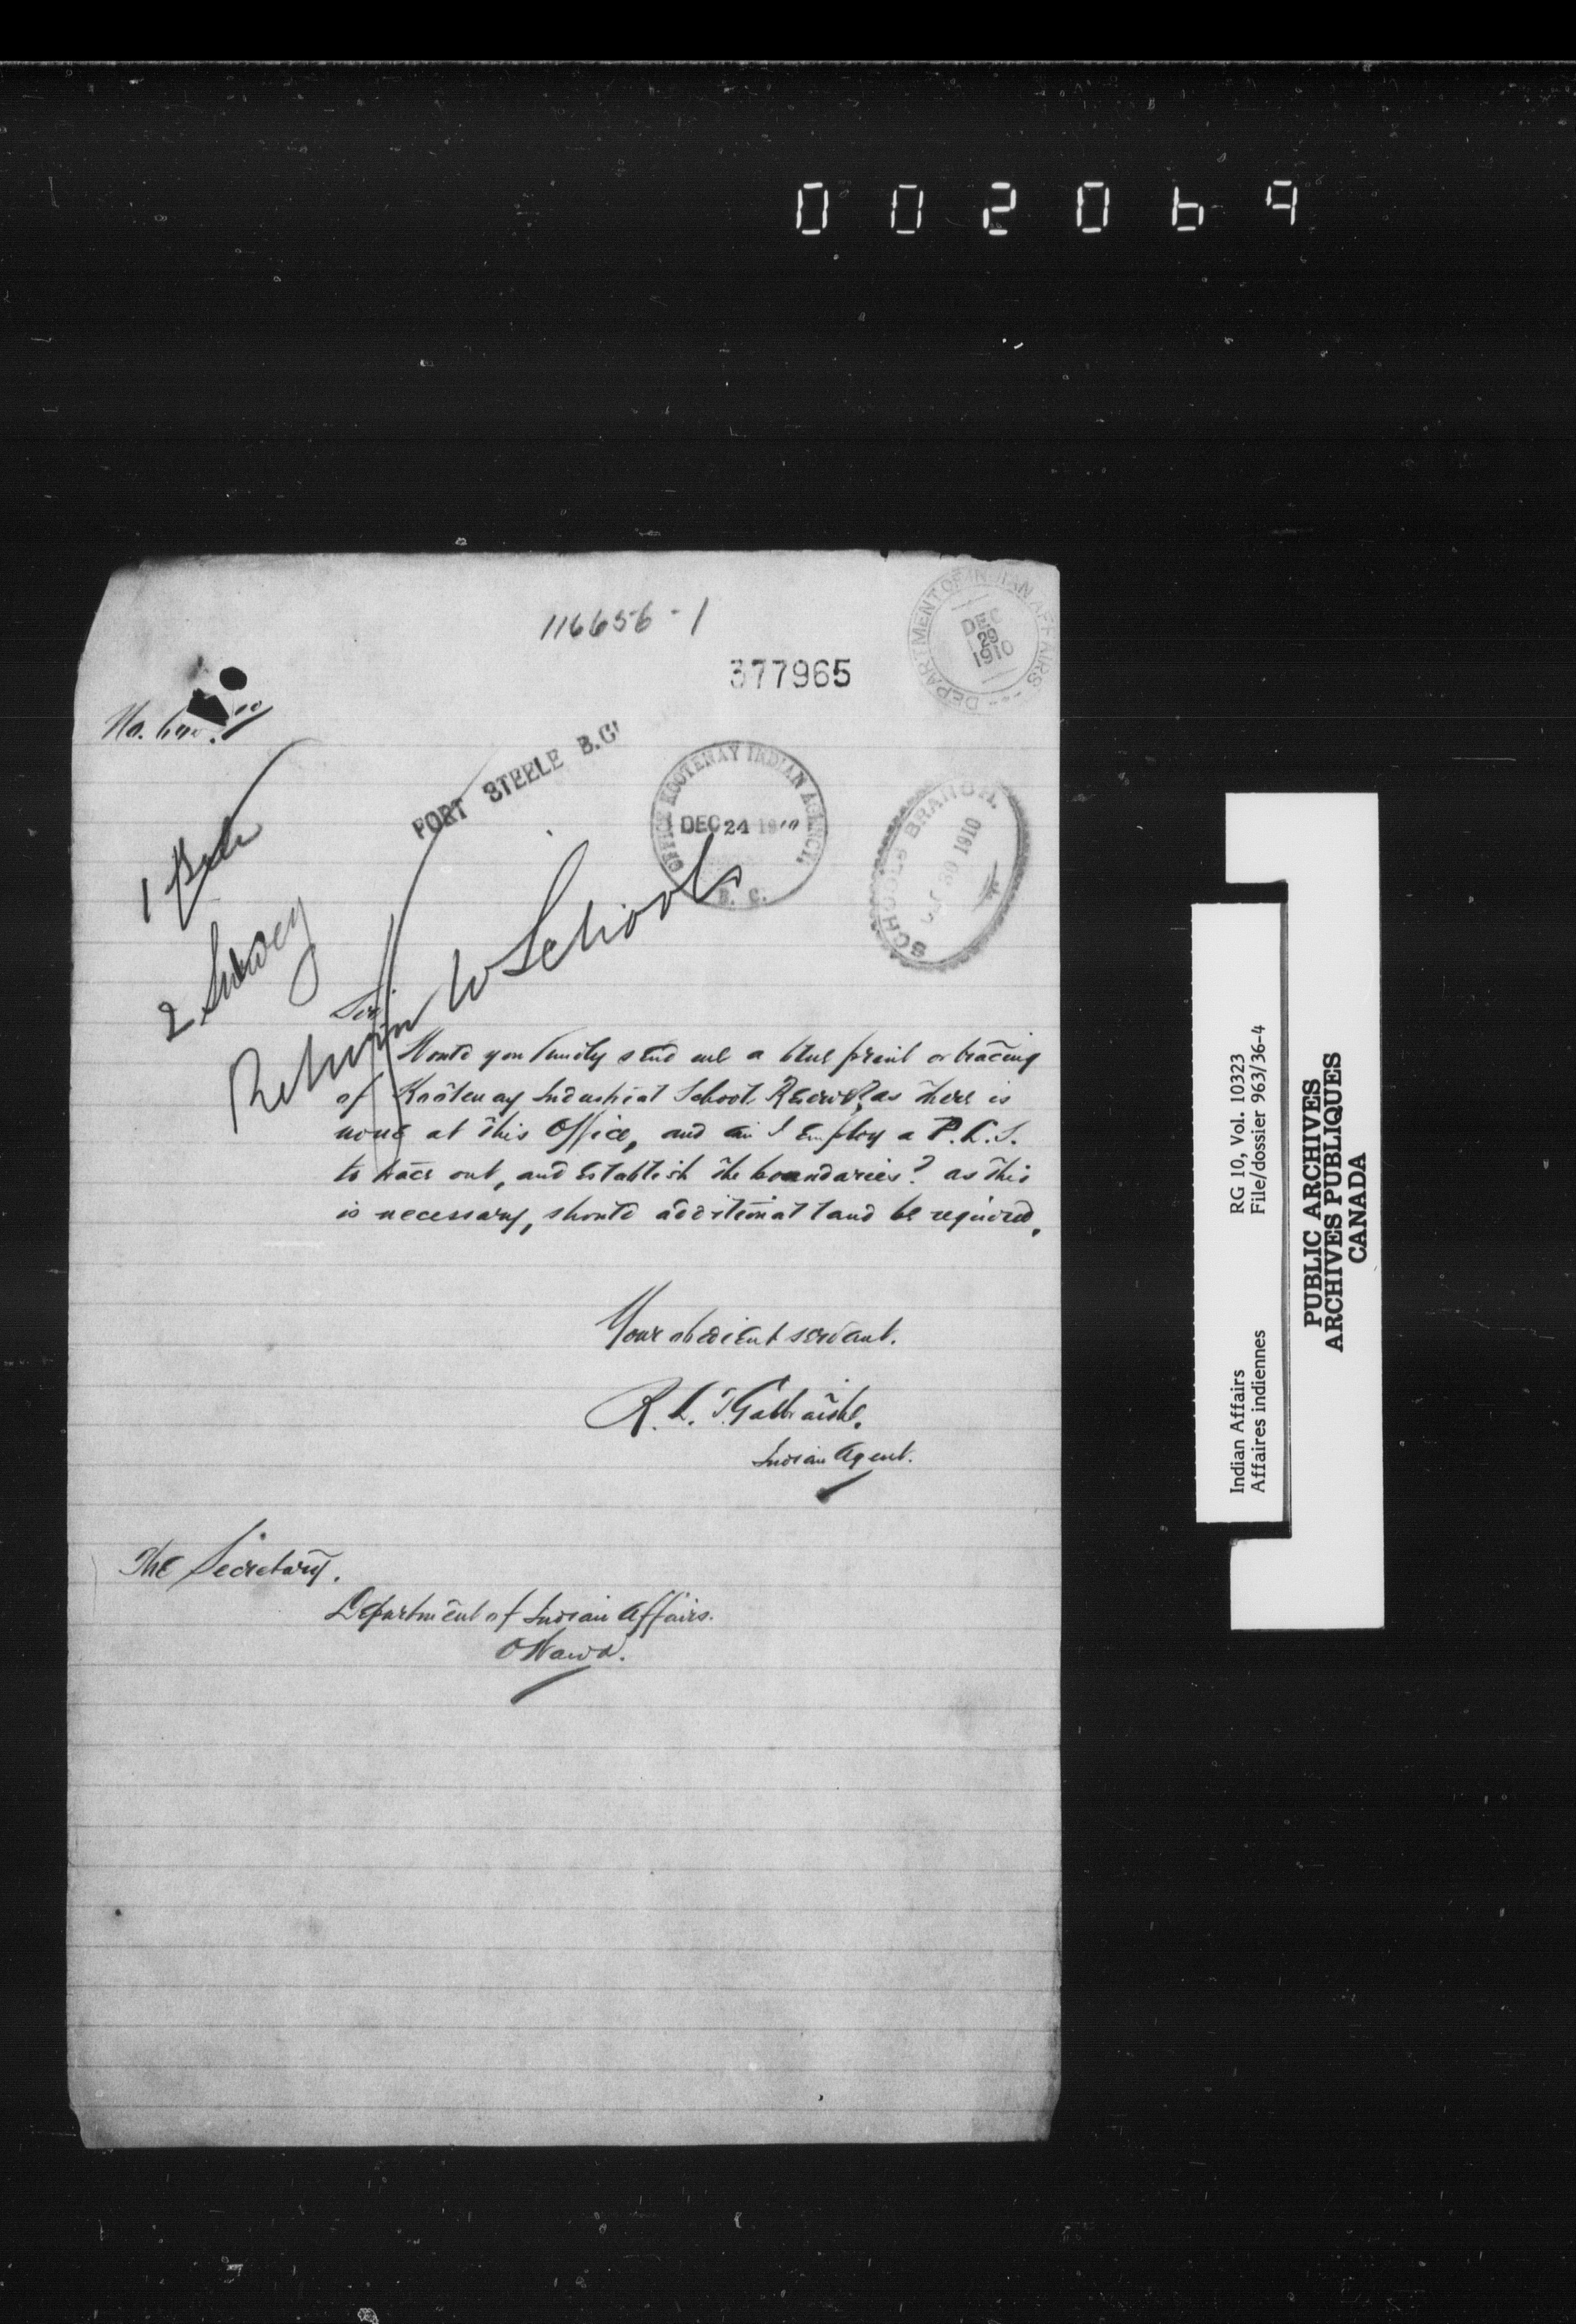 002069
116656-1
377965
DEPARTMENT OF INDIAN AFFAIRS
DEC
29
1910
No.
FORT STEELE B.C.
OFFICE KOOTENAY INDIAN AGENCY,
DEC 24 1910
B. C.
SCHOOLS BRANCH.
30 1910
1
2 Survey
Return to Schools
Sir,
Would you kindly send me a blue print or tracing
of Kootenay Industrial School Reserve? as there is
none at this Office, and can I Employ a P.L.S.
to trace out, and Establish the boundaries? as this
is necessary, should additional land be required.
Your obedient servant.
R. L. T. Galbraith.
Indian Agent.
The Secretary.
Department of Indian Affairs.
Ottawa.
Indian Affairs RG 10, Vol. 10323
Affaires indiennes File/dossier 963/36-4
PUBLIC ARCHIVES
ARCHIVES PUBLIQUES
CANADA